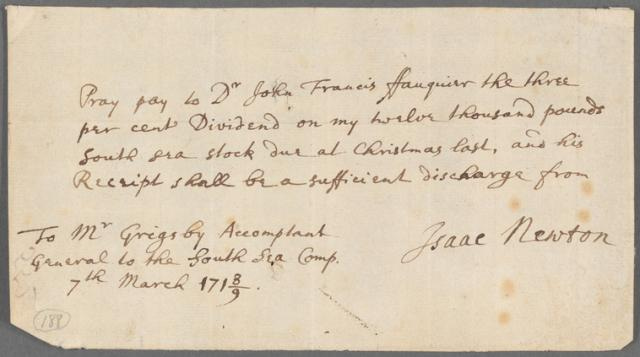 Pray pay to Dr John Francis ffauquier the three
per cent Dividend on my twelve thousand pounds
South sea stock due at Christmas last, and his
Receipt shall be a sufficient discharge from
Isaac Newton
To Mr Grigsby Accomptant
General to the South Sea Comp.
7th March 171 8/9.
188